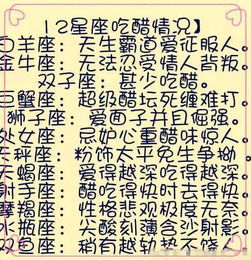 12星座吃醋情况】
白羊座：天生霸道爱征服人。
金牛座：无法忍爱情人背叛。
双子座：甚少吃醋。
巨蟹座：超级醋坛死缠难打。
狮子座：爱面子并且倔强。
处女座：忌妒心重醋味惊人。
天秤座：粉饰太平免生争拗
天蝎座：爱得越深吃得越深。
射手座：醋吃得快时去得快
摩羯座：性格悲观极度无奈
水瓶座：尖酸刻薄含沙射影。
双鱼座：稍有越轨势不饶人